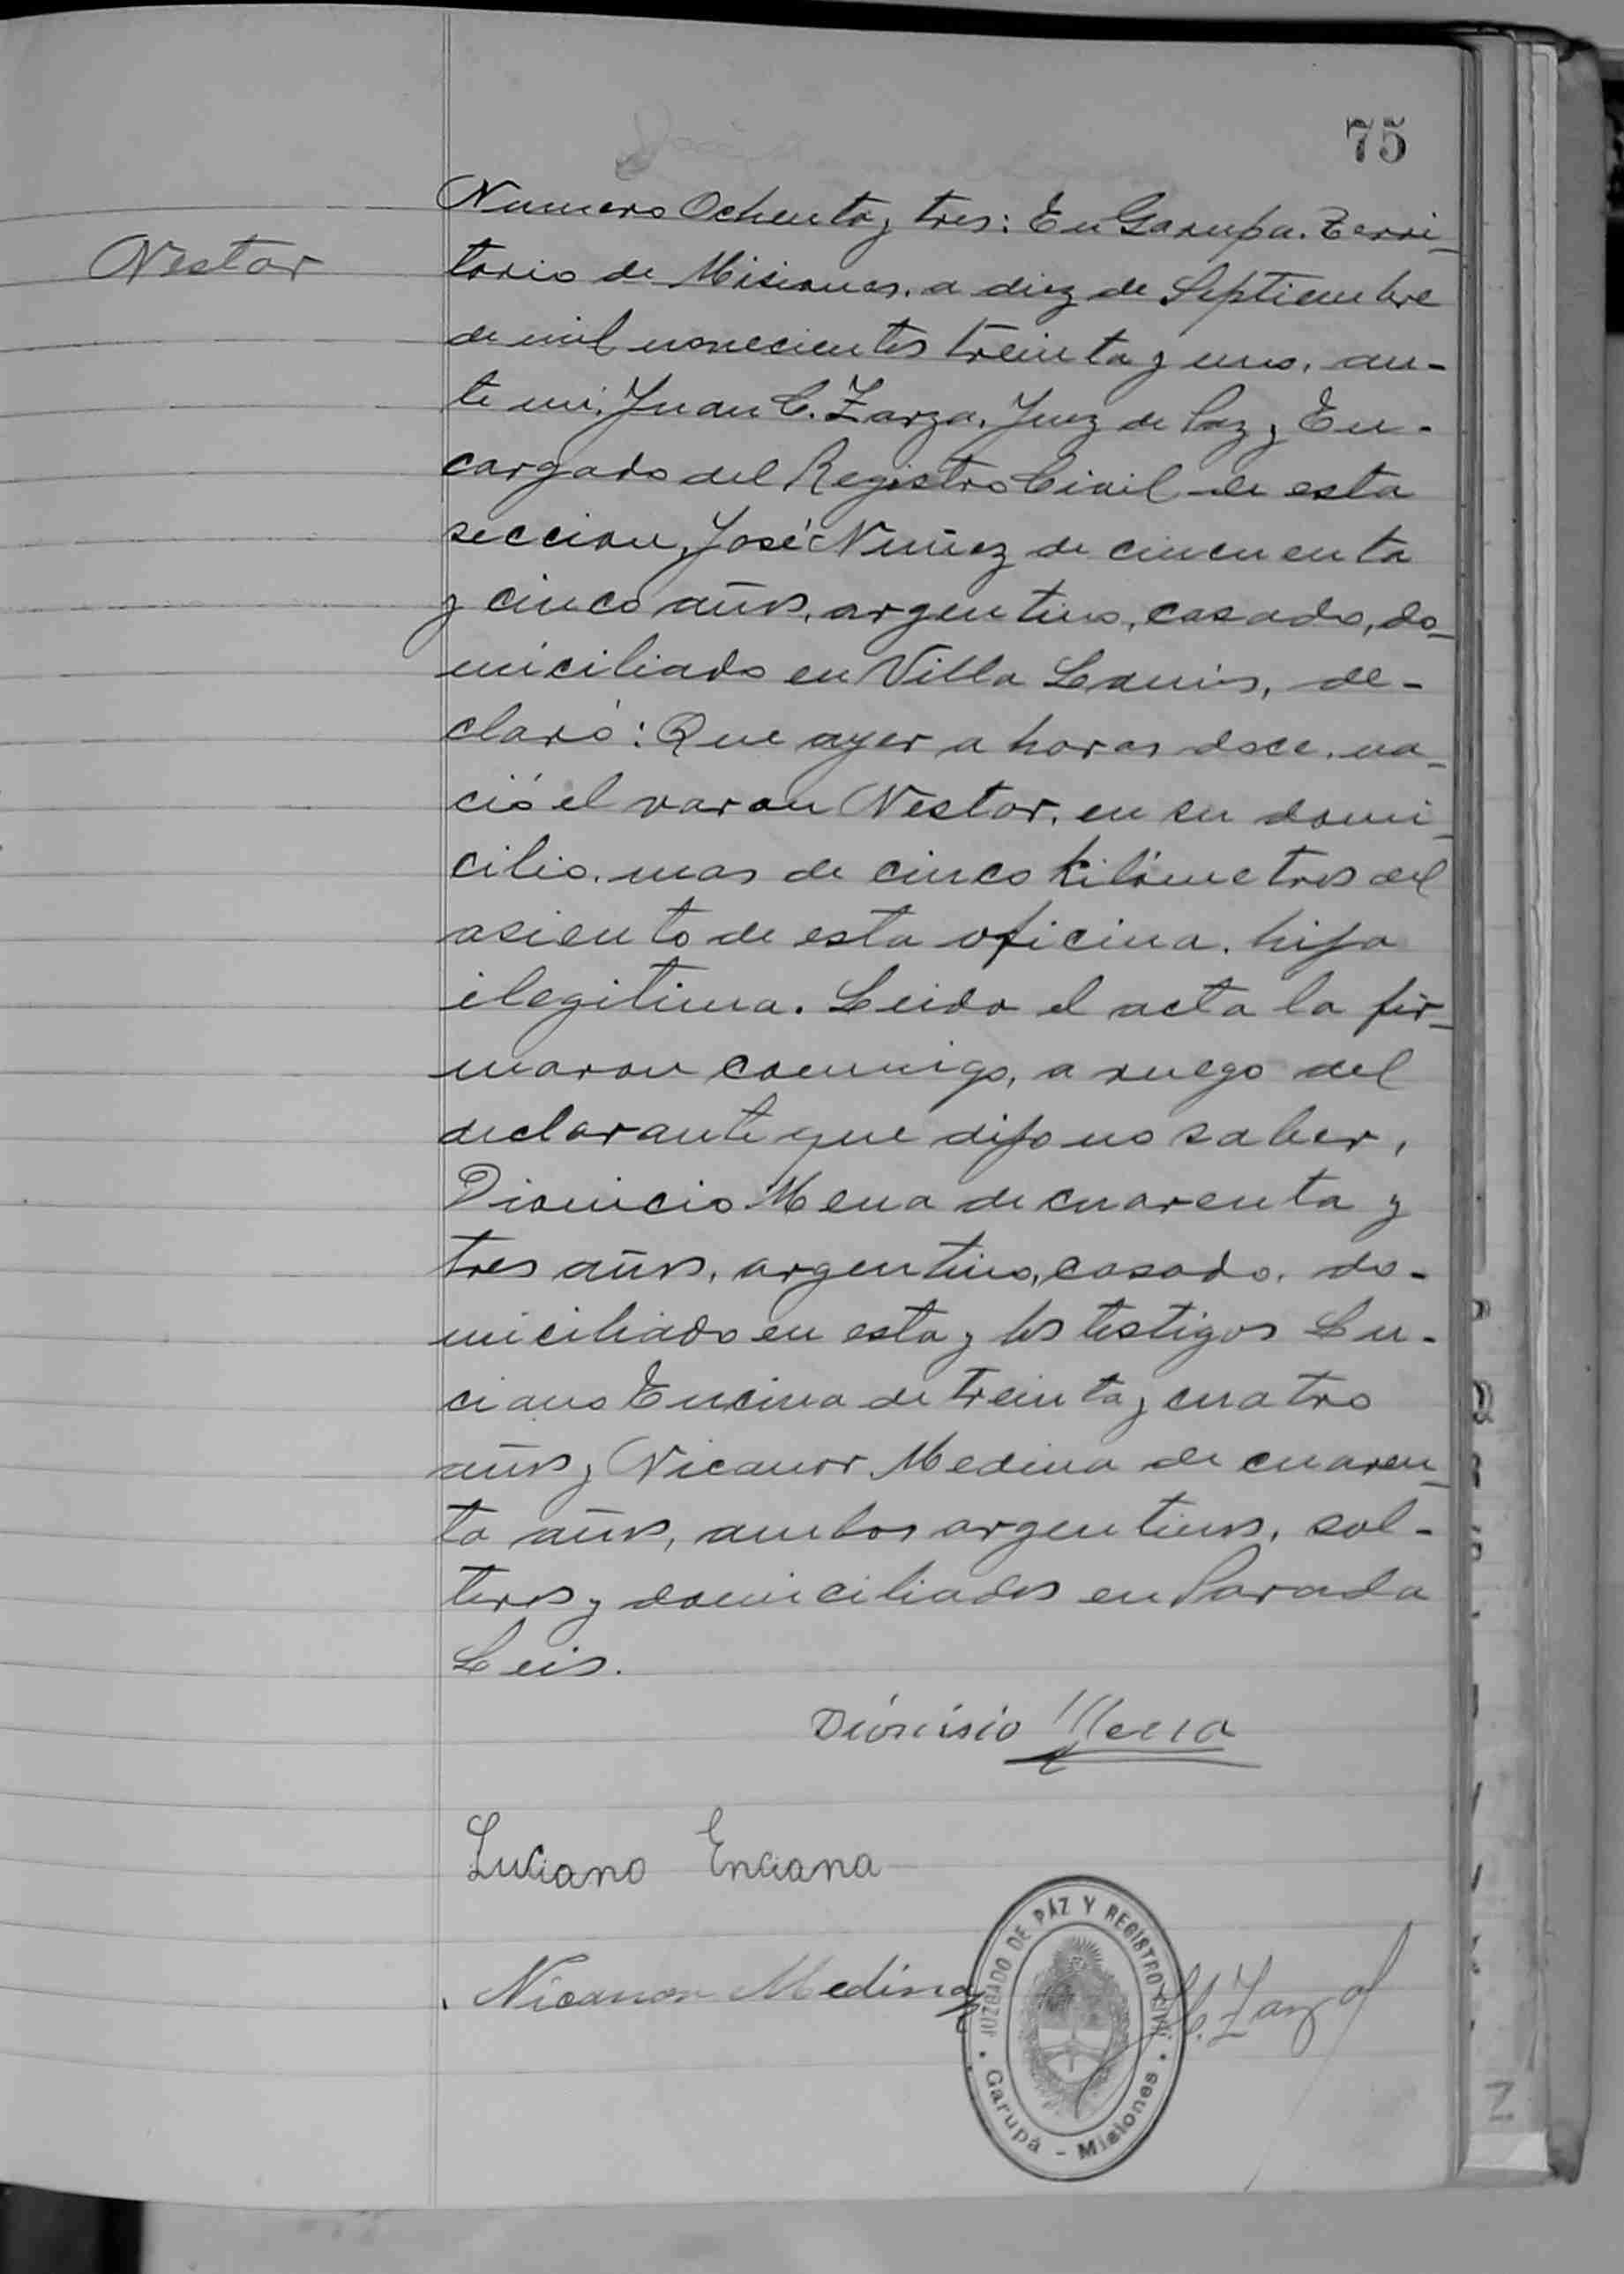 75
Nestor
Numero Ochenta y tres: En Garupa. Terri-
torio de Misiones. a diez de Septiembre
de mil novecientos treinta y uno, an-
te mi. Juan C. Zarza. Juez de Paz y En-
cargado del Registro Civil de esta
seccion, José Nuñez de cincuenta
y cinco años, argentino, casado, do-
miciliado en Villa Lanus, de-
claró: Que ayer a horas doce. na-
ció el varon Nestor. en su domi-
cilio. mas de cinco kilómetros del
asiento de esta oficina. hijo
ilegitima. Leida el acta la fir-
maron conmigo, a ruego del
declarante que dijo no saber,
Dionicio Mena de cuarenta y
tres años, argentino, casado. do-
miciliado en esta y los testigos Lu-
ciano Encina de treinta y cuatro
años y Nicanor Medina de cuaren-
ta años, ambos argentinos, sol-
teros y domiciliados en Parada
Leis.
Dionisio Mena
Luciano Enciana
Nicanor Medina
C. Zarza
JUZGADO DE PAZ Y REGISTRO CIVIL
Garupá - Misiones
Z